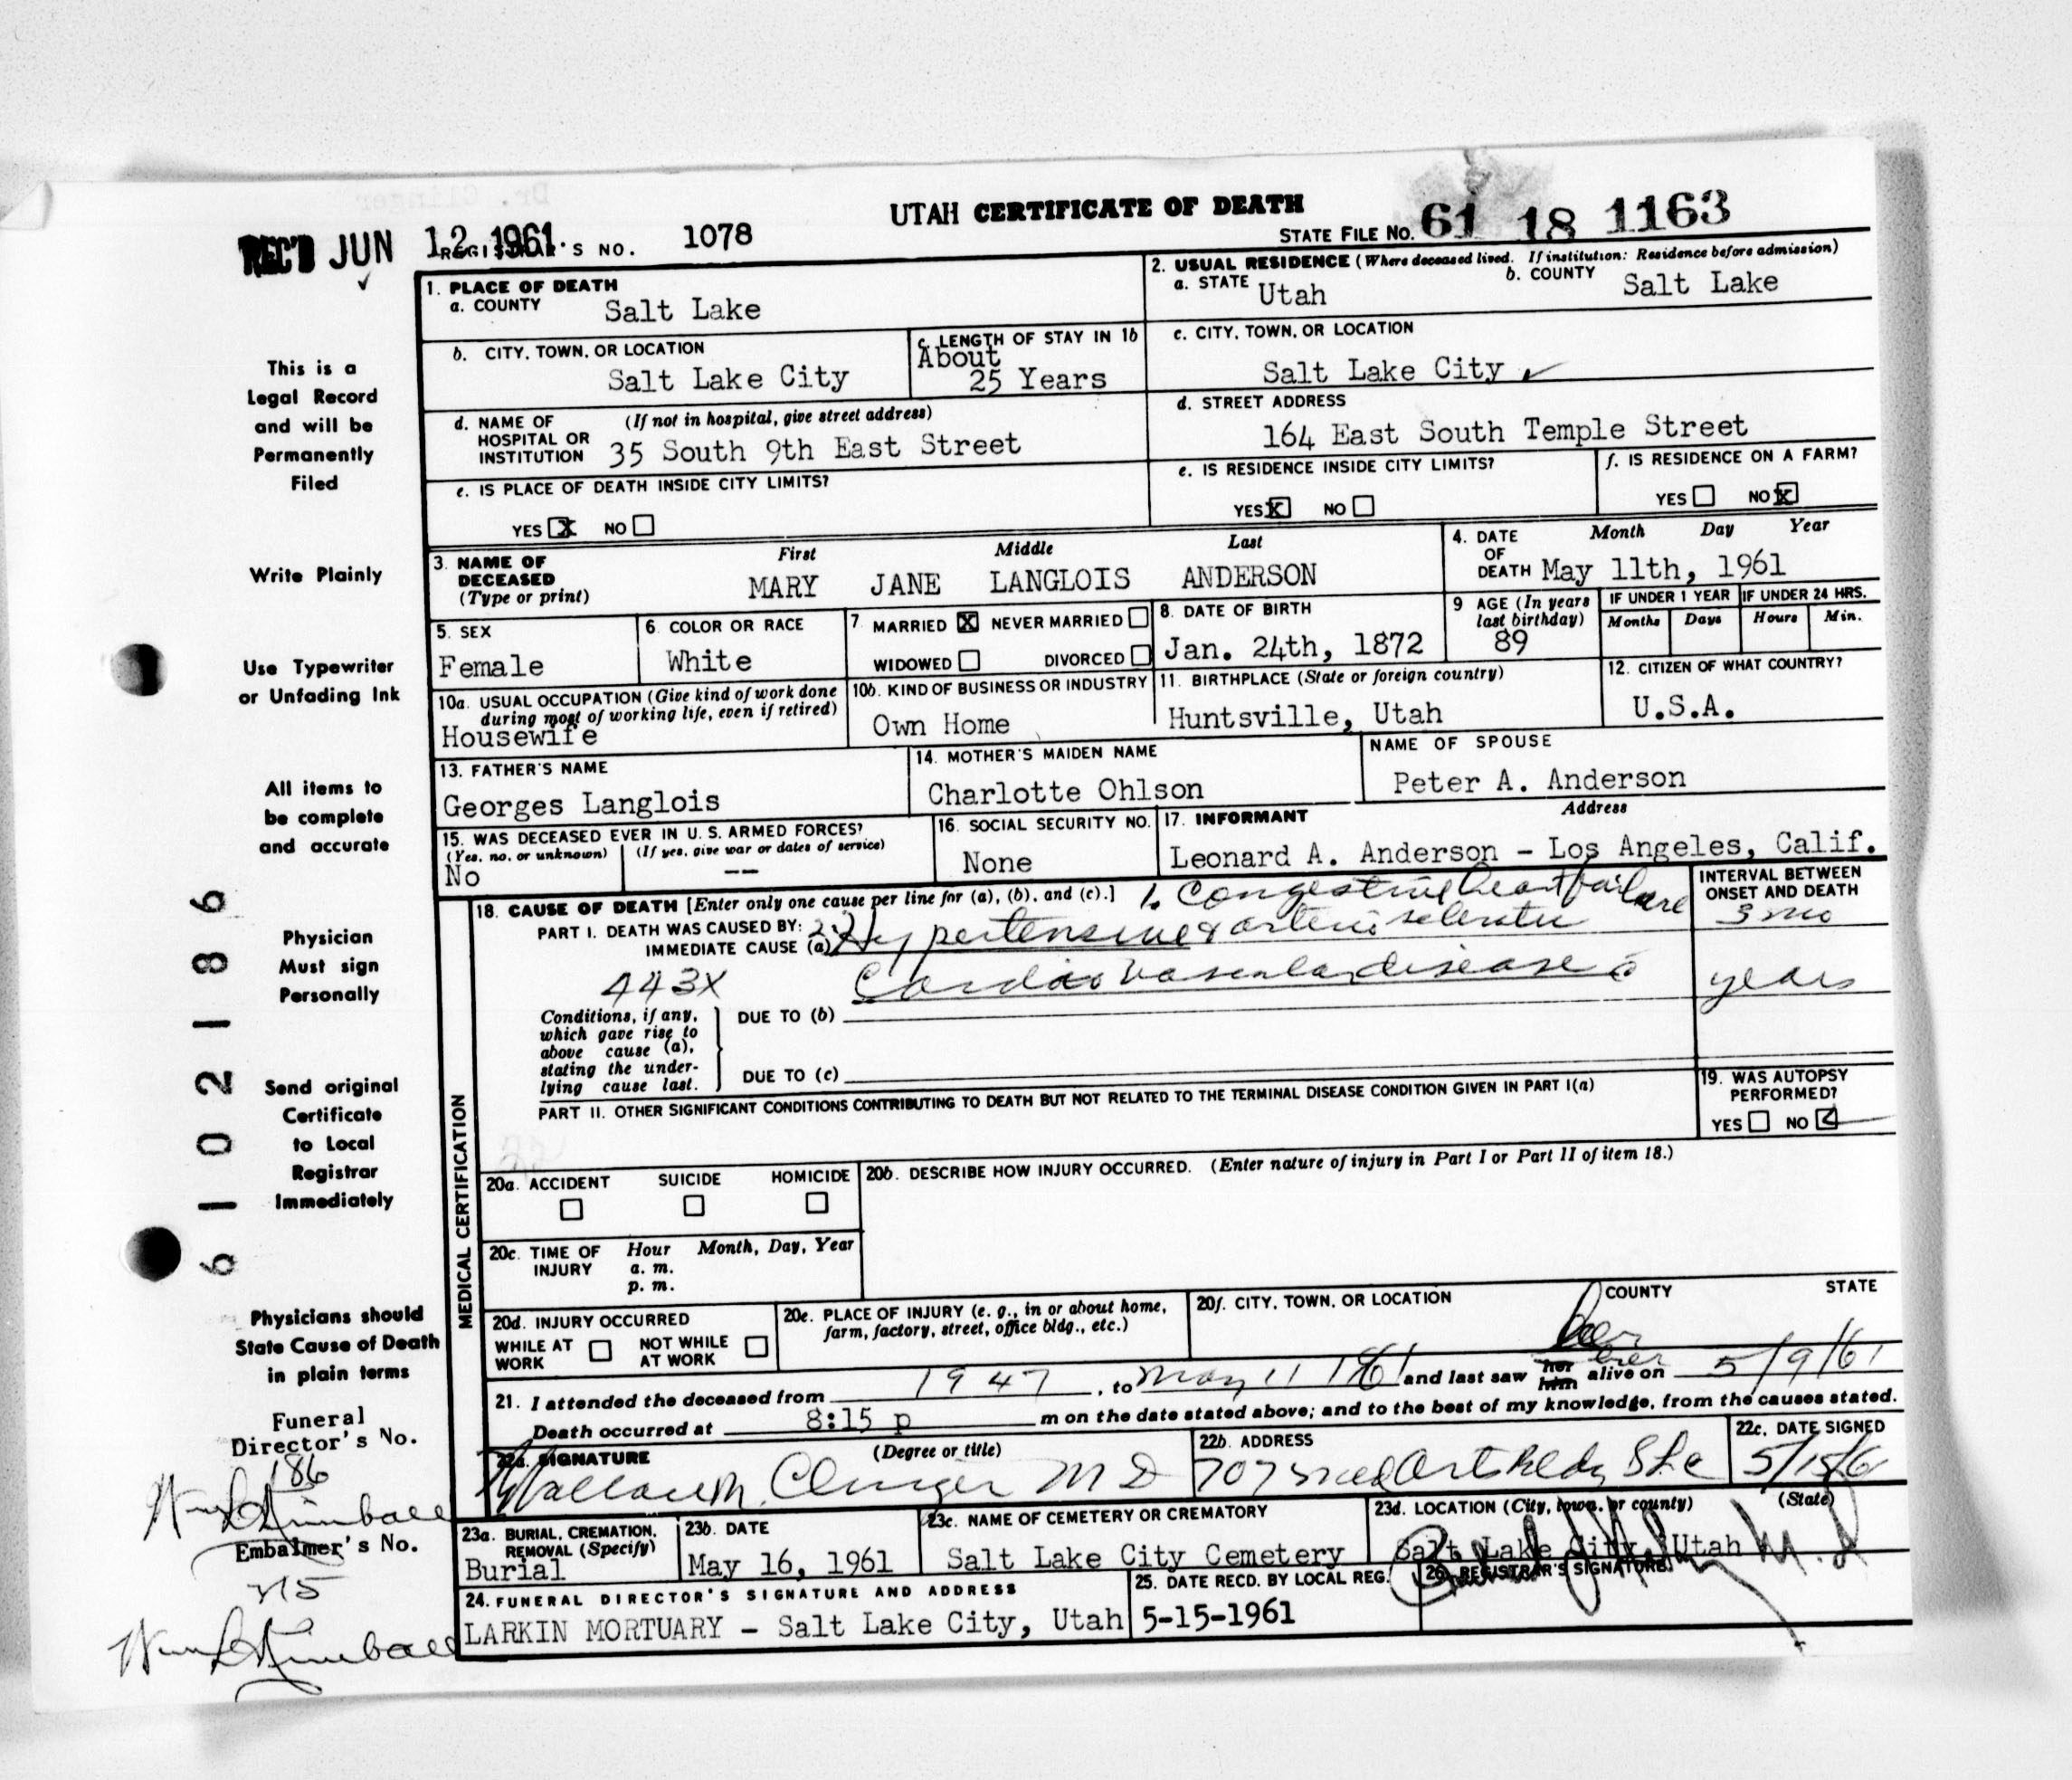 UTAH CERTIFICATE OF DEATH
REC'D JUN 12 1961.
REGISTRAR'S NO. 1078
STATE FILE NO. 61 18 1163
1. PLACE OF DEATH
a. COUNTY Salt Lake
2. USUAL RESIDENCE (Where deceased lived. If institution: Residence before admission)
a. STATE Utah b. COUNTY Salt Lake
b. CITY, TOWN, OR LOCATION
Salt Lake City
c. LENGTH OF STAY IN 1b
About
25 Years
c. CITY, TOWN, OR LOCATION
Salt Lake City
d. NAME OF HOSPITAL OR INSTITUTION (If not in hospital, give street address)
35 South 9th East Street
d. STREET ADDRESS
164 East South Temple Street
e. IS PLACE OF DEATH INSIDE CITY LIMITS?
YES X NO
e. IS RESIDENCE INSIDE CITY LIMITS?
YES X NO
f. IS RESIDENCE ON A FARM?
YES NO X
3. NAME OF DECEASED (Type or print)
First Middle Last
MARY JANE LANGLOIS ANDERSON
4. DATE OF DEATH Month Day Year
May 11th, 1961
5. SEX
Female
6. COLOR OR RACE
White
7. MARRIED X NEVER MARRIED
WIDOWED DIVORCED
8. DATE OF BIRTH
Jan. 24th, 1872
9 AGE (In years last birthday)
89
IF UNDER 1 YEAR IF UNDER 24 HRS.
Months Days Hours Min.
10a. USUAL OCCUPATION (Give kind of work done during most of working life, even if retired)
Housewife
10b. KIND OF BUSINESS OR INDUSTRY
Own Home
11. BIRTHPLACE (State or foreign country)
Huntsville, Utah
12. CITIZEN OF WHAT COUNTRY?
U.S.A.
13. FATHER'S NAME
Georges Langlois
14. MOTHER'S MAIDEN NAME
Charlotte Ohlson
NAME OF SPOUSE
Peter A. Anderson
15. WAS DECEASED EVER IN U. S. ARMED FORCES?
(Yes, no, or unknown) (If yes, give war or dates of service)
No --
16. SOCIAL SECURITY NO.
None
17. INFORMANT Address
Leonard A. Anderson - Los Angeles, Calif.
MEDICAL CERTIFICATION
18. CAUSE OF DEATH [Enter only one cause per line for (a), (b), and (c).] 1. Congestive heart failure
PART I. DEATH WAS CAUSED BY:
IMMEDIATE CAUSE (a) 2. Hypertensive & arterio sclerotic
443X Cardio vascular disease
INTERVAL BETWEEN ONSET AND DEATH
3 mo
years
Conditions, if any, which gave rise to above cause (a), stating the underlying cause last.
DUE TO (b)
DUE TO (c)
PART II. OTHER SIGNIFICANT CONDITIONS CONTRIBUTING TO DEATH BUT NOT RELATED TO THE TERMINAL DISEASE CONDITION GIVEN IN PART I(a)
19. WAS AUTOPSY PERFORMED?
YES NO
20a. ACCIDENT SUICIDE HOMICIDE
20b. DESCRIBE HOW INJURY OCCURRED. (Enter nature of injury in Part I or Part II of item 18.)
20c. TIME OF INJURY Hour Month, Day, Year
a. m.
p. m.
20d. INJURY OCCURRED
WHILE AT WORK NOT WHILE AT WORK
20e. PLACE OF INJURY (e. g., in or about home, farm, factory, street, office bldg., etc.)
20f. CITY, TOWN, OR LOCATION COUNTY STATE
21. I attended the deceased from 1947, to May 11 1961 and last saw her him her alive on 5/9/61
Death occurred at 8:15 p m on the date stated above; and to the best of my knowledge, from the causes stated.
22a. SIGNATURE (Degree or title)
Clinger M D
22b. ADDRESS
707 Med Arts Bldg SLC
22c. DATE SIGNED
5/15/61
23a. BURIAL, CREMATION, REMOVAL (Specify)
Burial
23b. DATE
May 16, 1961
23c. NAME OF CEMETERY OR CREMATORY
Salt Lake City Cemetery
23d. LOCATION (City, town, or county) (State)
Salt Lake City, Utah
24. FUNERAL DIRECTOR'S SIGNATURE AND ADDRESS
LARKIN MORTUARY - Salt Lake City, Utah
25. DATE RECD. BY LOCAL REG.
5-15-1961
26. REGISTRAR'S SIGNATURE
M.D
This is a
Legal Record
and will be
Permanently
Filed
Write Plainly
Use Typewriter
or Unfading Ink
All items to
be complete
and accurate
Physician
Must sign
Personally
Send original
Certificate
to Local
Registrar
Immediately
Physicians should
State Cause of Death
in plain terms
Funeral
Director's No.
186
Kimball
Embalmer's No.
Kimball
6102186
Dr. Clinger